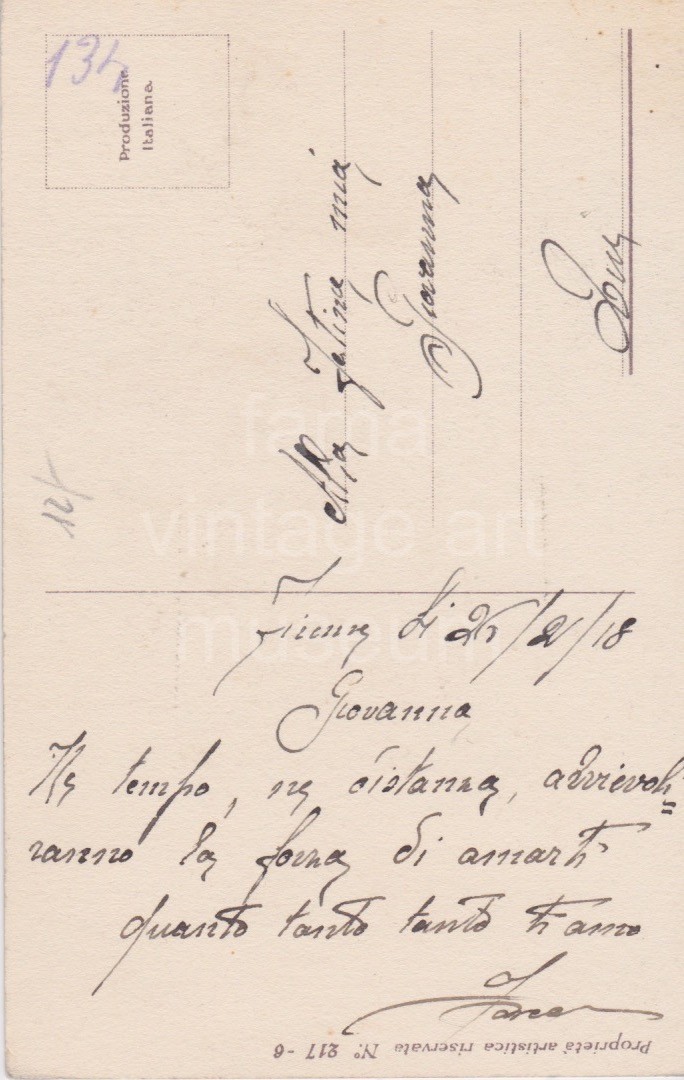 134
Produzione
Italiana
Alla
mia
Giovanna
fama
vintage art
museum
Fiume li 25/2/18
Giovanna
Ne tempo, ne distanza, avvievoli=
ranno la forza di amarti
quanto tanto tanto ti amo
Proprietà artistica riservata N°. 217 - 6